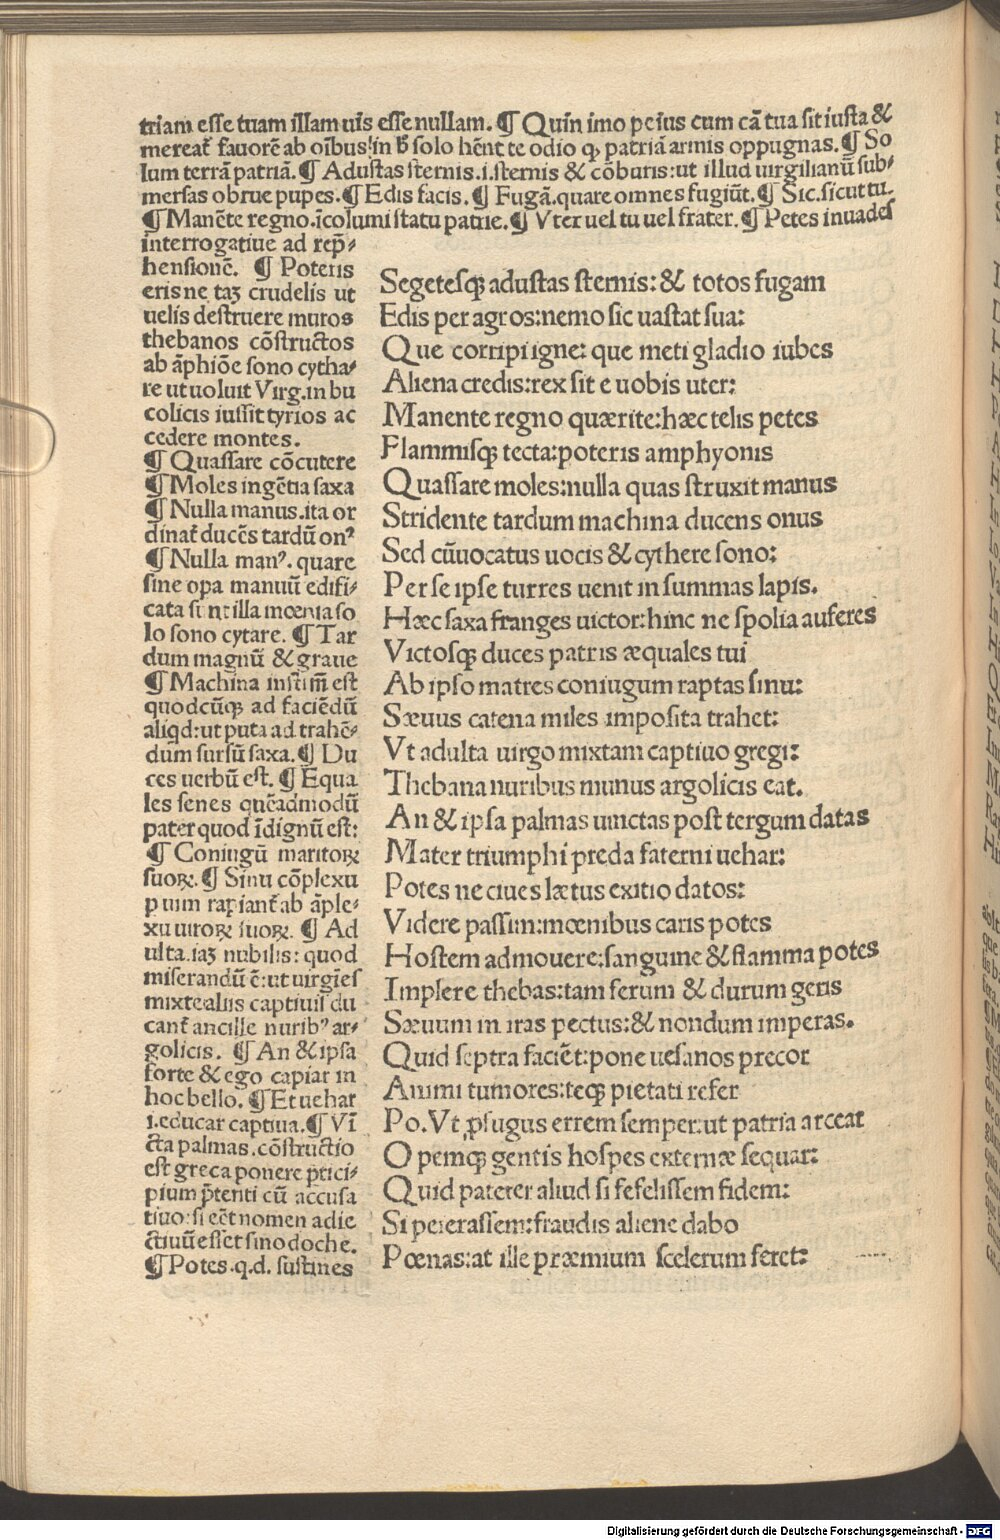 triam esse tuam illam uis esse nullam. ¶ Quin imo peius cum cā tua sit iusta &
mereat᷑ fauorē ab oībus! in ħ solo hēnt te odio ꝙ patriā armis oppugnas. ¶ So
lum terrā patriā. ¶ Adustas sternis .i. sternis & cōburis: ut illud uirgilianū sub-
mersas obrue pupes. ¶ Edis facis. ¶ Fugā. quare omnes fugiūt. ¶ Sic. sicut tu.
¶ Manēte regno. īcolumi statu patrie. ¶ Vter uel tu uel frater. ¶ Petes inuades
interrogatiue ad rep̄-
hensionē. ¶ Poteris
eris ne taʒ crudelis ut
uelis destruere muros
thebanos cōstructos
ab āphiōe sono cytha-
re ut uoluit Virg. in bu
colicis iussit tyrios ac
cedere montes.
¶ Quassare cōcutere
¶ Moles ingētia saxa
¶ Nulla manus. ita or
dinat᷑ ducēs tardū onꝰ
¶ Nulla manꝰ. quare
sine opa manuū edifi-
cata sunt illa mœnia so
lo sono cytare. ¶ Tar
dum magnū & graue
¶ Machina instīm̄ est
quodcūqꝫ ad faciēdū
aliqd: ut puta ad trahē-
dum sursū saxa. ¶ Du
ces uerbū est. ¶ Equa
les senes quēadmodū
pater quod īdignū est:
¶ Coniugū maritoꝝ
suoꝝ. ¶ Sinu cōplexu
p uim rapiant᷑ ab āple-
xu uiroꝝ suoꝝ. ¶ Ad
ulta. iaʒ nubilis: quod
miserandū ē: ut uirgīes
mixte aliis captiuis du
cant᷑ ancille nuribꝰ ar-
golicis. ¶ An & ipsa
forte & ego capiar in
hoc bello. ¶ Et uehar
i. educar captiua. ¶ Vī
cta palmas. cōstructio
est greca ponere p̄tici-
pium p̄teriti cū accusa
tiuo: si eēt nomen adie
ctiuū esset sinodoche.
¶ Potes .q.d. sustines
Segetesqꝫ adustas sternis: & totos fugam
Edis per agros: nemo sic uastat sua:
Que corripi igne: que meti gladio iubes
Aliena credis: rex sit e uobis uter:
Manente regno quærite: hæc telis petes
Flammisqꝫ tecta: poteris amphyonis
Quassare moles: nulla quas struxit manus
Stridente tardum machina ducens onus
Sed cūuocatus uocis & cythere sono:
Per se ipse turres uenit in summas lapis.
Hæc saxa franges uictor: hinc ne spolia auferes
Victosqꝫ duces patris æquales tui
Ab ipso matres coniugum raptas sinu:
Sæuus catena miles imposita trahet:
Vt adulta uirgo mixtam captiuo gregi:
Thebana nuribus munus argolicis eat.
An & ipsa palmas uinctas post tergum datas
Mater triumphi preda faterni uehar:
Potes ne ciues lætus exitio datos:
Videre passim: mœnibus caris potes
Hostem admouere: sanguine & flamma potes
Implere thebas: tam ferum & durum geris
Sæuum in iras pectus: & nondum imperas.
Quid septra faciēt: pone uesanos precor
Animi tumores: teqꝫ pietati refer
Po. Vt ꝓfugus errem semper: ut patria arcear
Opemqꝫ gentis hospes externæ sequar:
Quid paterer aliud si fefelissem fidem:
Si peierassem: fraudis aliene dabo
Pœnas: at ille præmium scelerum feret:
Digitalisierung gefördert durch die Deutsche Forschungsgemeinschaft - DFG